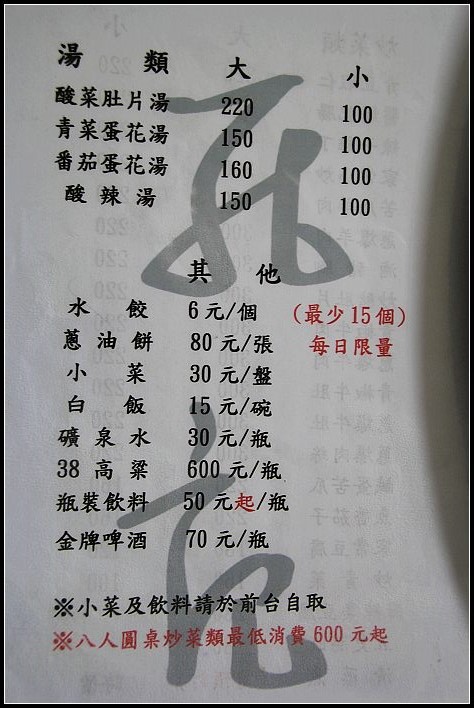 湯類 大 小
酸菜肚片湯 220 100
青菜蛋花湯 150 100
番茄蛋花湯 160 100
酸辣湯 150 100
其他
水餃 6元/個 (最少15個)
蔥油餅 80元/張 每日限量
小菜 30元/盤
白飯 15元/碗
礦泉水 30元/瓶
38高粱 600元/瓶
瓶裝飲料 50元起/瓶
金牌啤酒 70元/瓶
※小菜及飲料請於前台自取
※八人圓桌炒菜類最低消費600元起